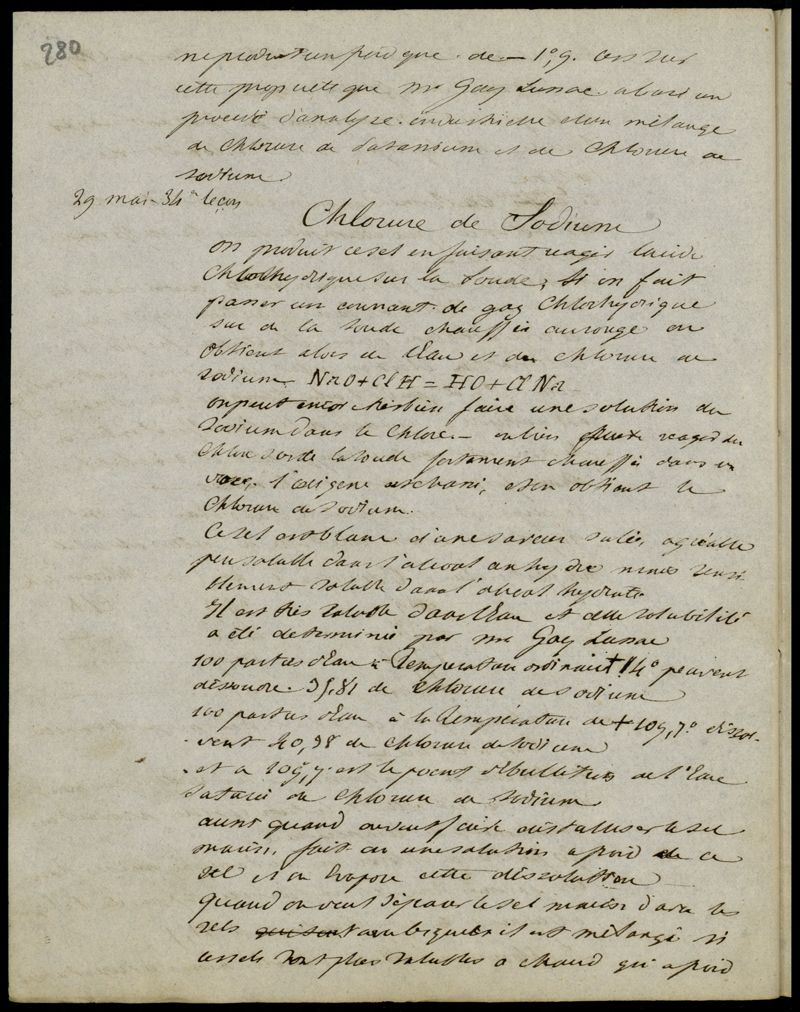 280
ne produit un froid que de – 1°,9. C'est sur
cette propriété que Mr Gay Lussac a basé un
procédé d'analyse d'un mélange
de Chlorure de Potassium et de Chlorure de
sodium
29 mai - 34e leçon
Chlorure de Sodium
on produit ce sel en faisant réagir l'acide
Chlorhydrique sur la soude; si on fait
passer un courant de gaz Chlorhydrique
sur de la soude chauffée au rouge on
obtient alors de l'eau et du chlorure de
sodium NaO + ClH = HO + ClNa
on peut encore très bien faire une solution du
Sodium dans le Chlore – ou bien réagir du
Chlore sur de la soude fortement chauffée dans un
l'oxigène est chassé, et on obtient le
Chlorure de sodium.
Ce sel est blanc d'une saveur salée, agréable
peu soluble dans l'alcool anhydre même sensi-
blement soluble dans l'alcool hydraté
Il est très soluble dans l'eau et cette solubilité
a été déterminée par Mr Gay Lussac
100 parties d'eau à température ordinaire + 14° peuvent
dissoudre 35,81 de chlorure de sodium
100 parties d'eau à la température de + 109,7° dissol-
vent 40,38 de chlorure de sodium
et à 109,7 est le point d'ébullition de l'eau
saturée de chlorure de sodium
aussi quand on veut faire cristalliser le sel
marin, fait on une solution a froid de ce
sel et on évapore cette dissolution
quand on veut séparer le sel marin d'avec les
sels avec lesquels il est mélangé si
ces sels sont plus solubles a chaud qu'a froid